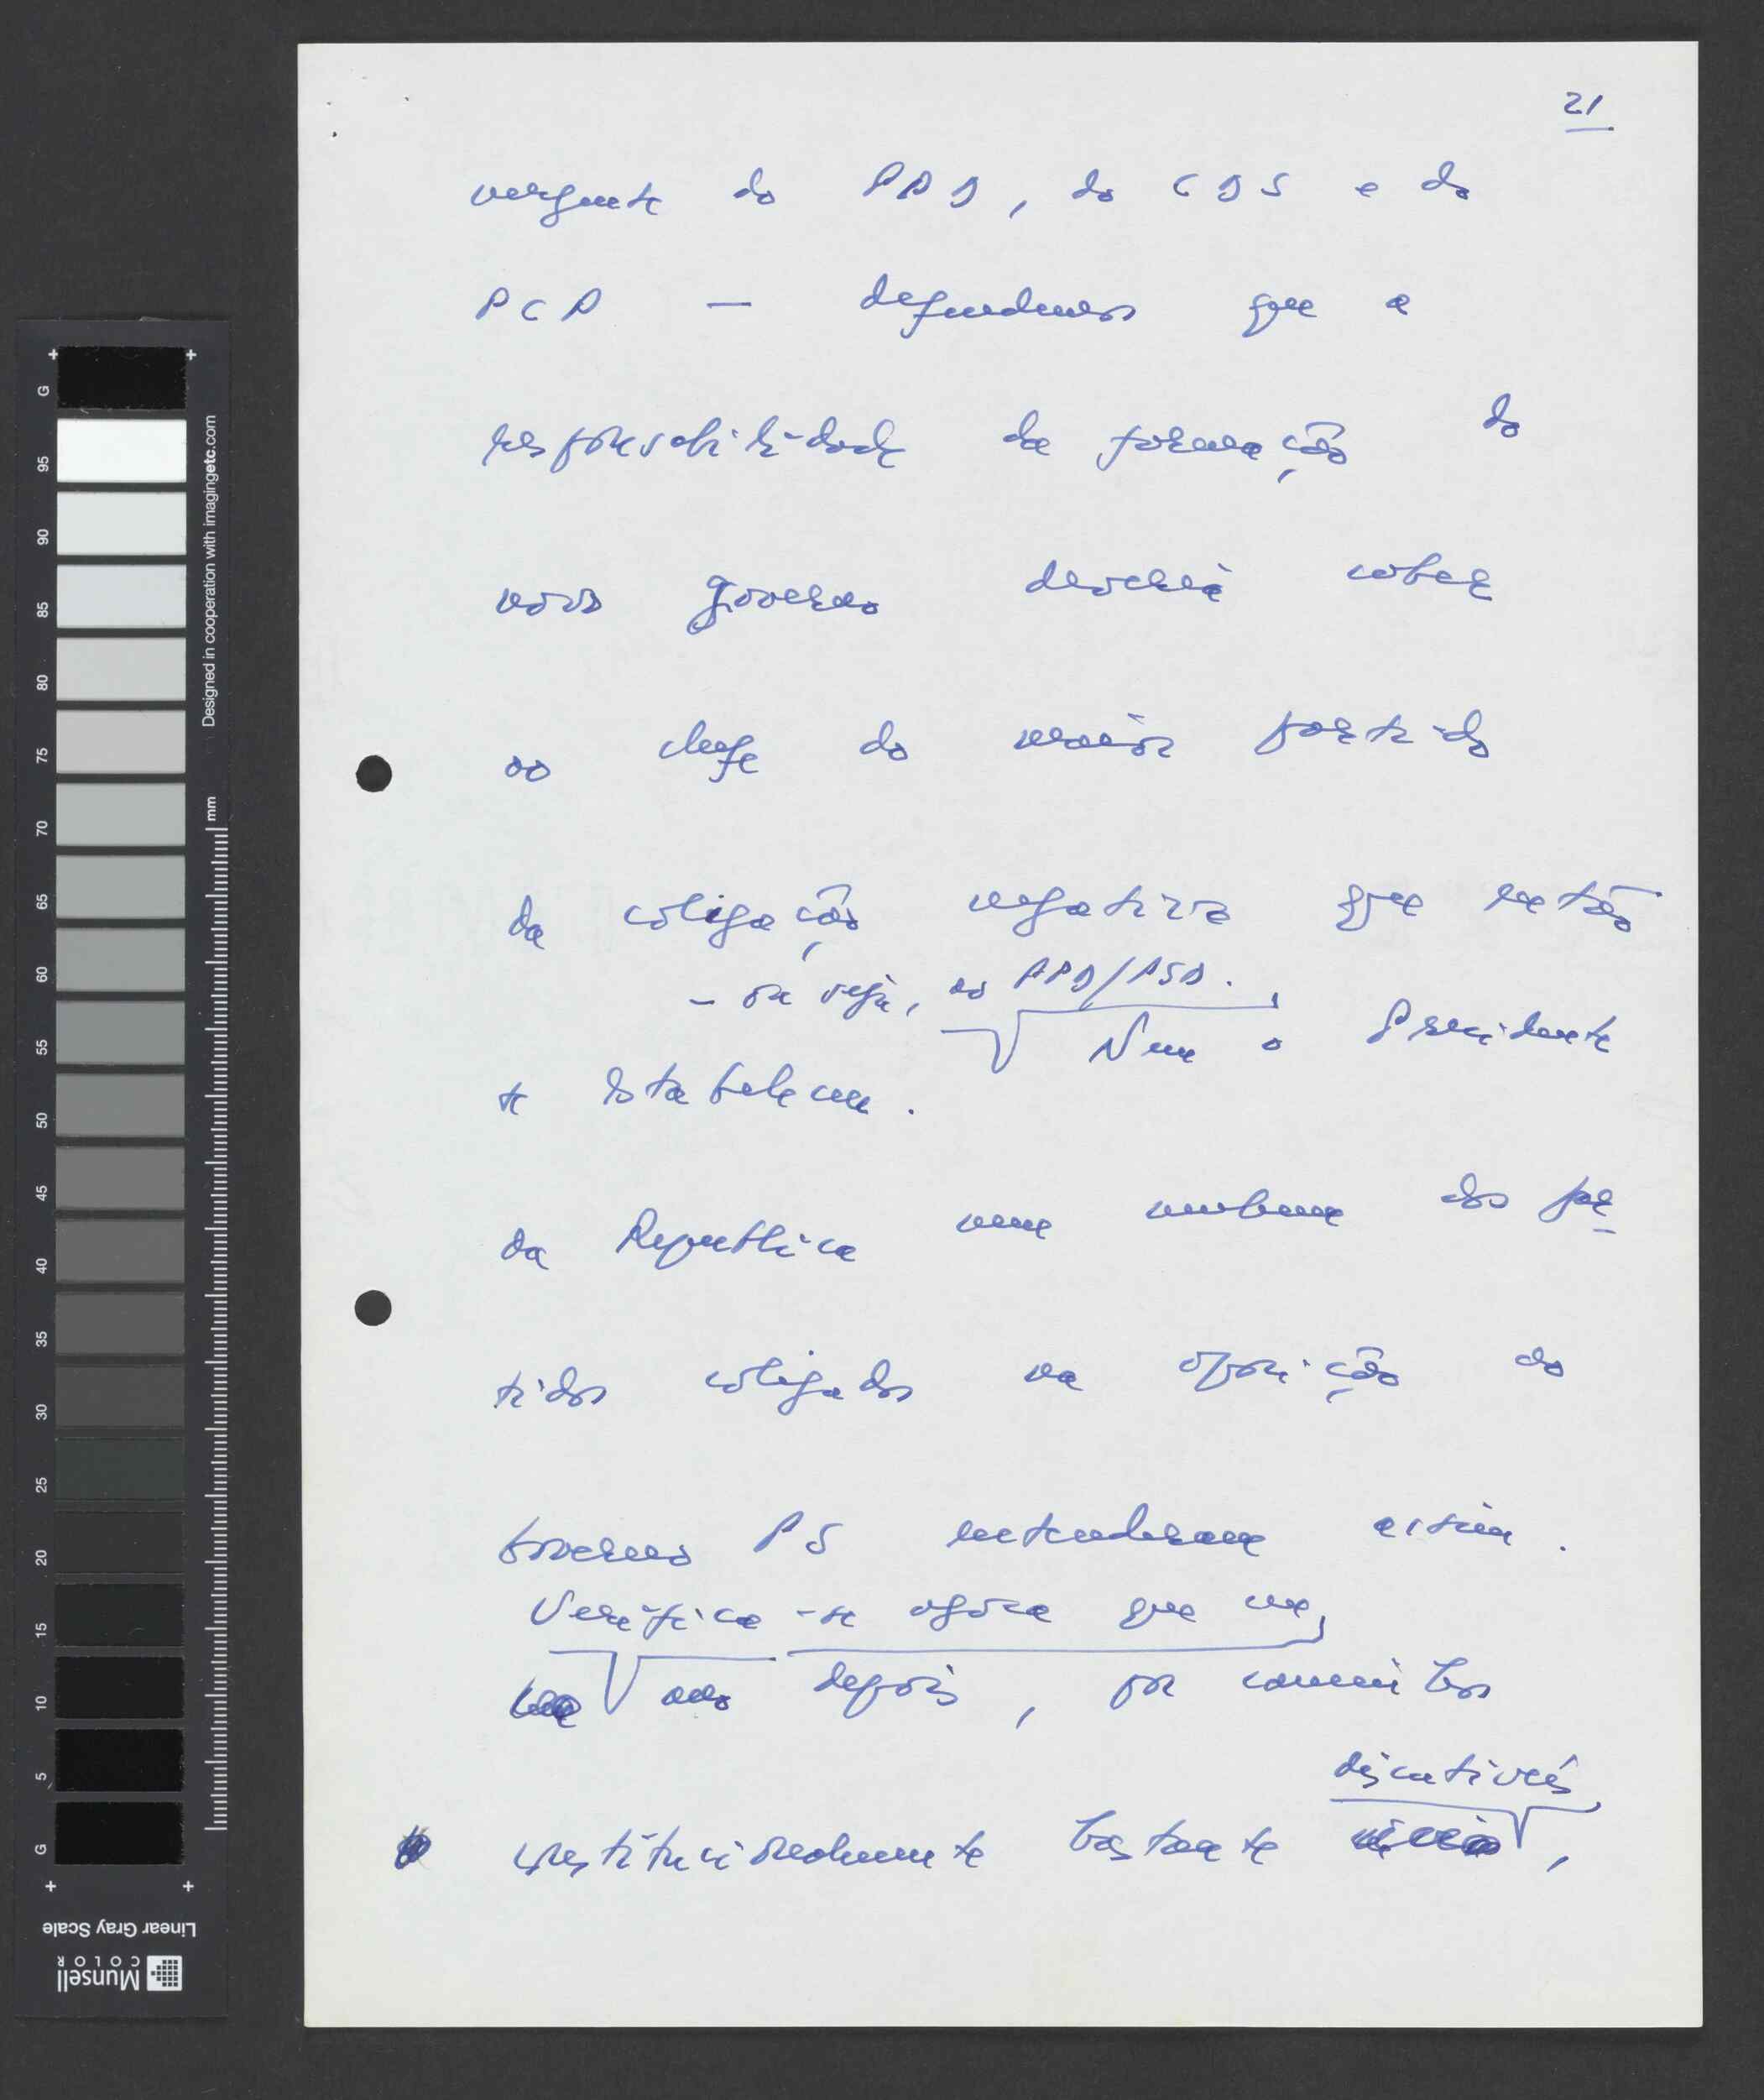 21
vergente do PPD, do CDS e do
PCP — defendemos que a
responsabilidade da formação do
novo Governo deveria caber
ao chefe do maior partido
da coligação negativa que então
- ou seja, ao PPD/PSD.
se estabeleceu. Nem o Presidente
da Republica nem nenhum dos par
tidos coligados na oposição ao
Governo PS entenderam assim.
Verifica-se agora que um
ano depois, por caminhos
discutíveis
constitucionalmente bastante ,
G
95
90
85
80
75
70
65
60
55
50
45
40
35
30
25
20
15
10
5
G
Designed in cooperation with imagingetc.com
mm
Linear Gray Scale
Munsell
COLOR